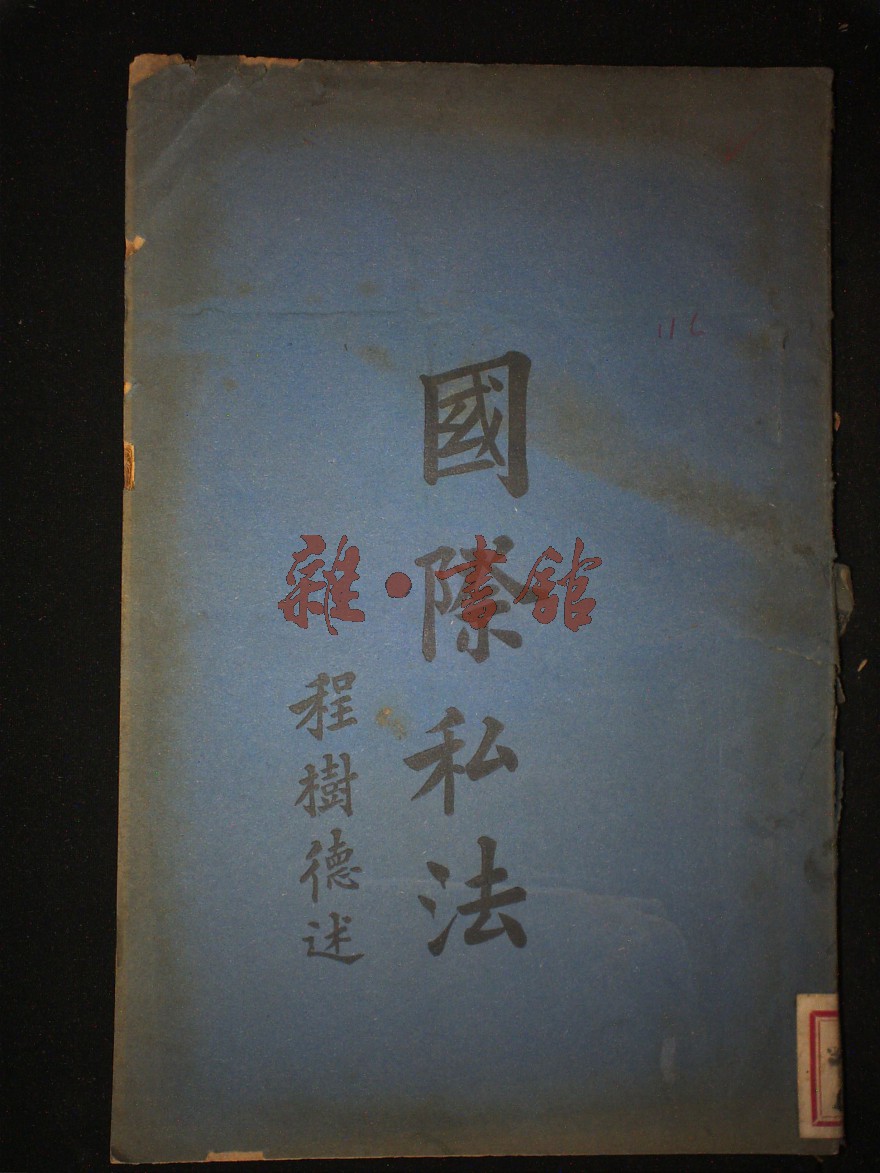 國際私法
程樹德述
雜·書館